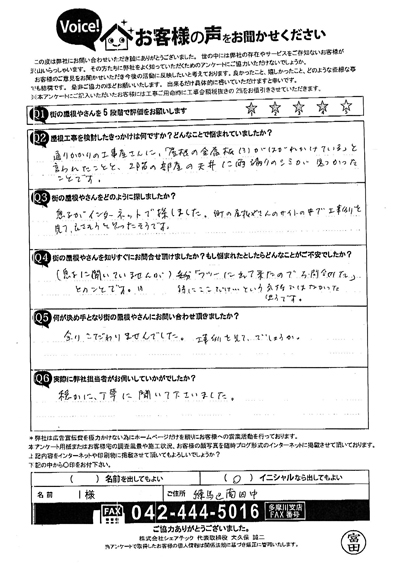 Voice! お客様の声をお聞かせください
この度は弊社にお問い合わせいただき誠にありがとうございました。世の中には弊社の存在やサービスをご存知ないお客様が
沢山いらっしゃいます。その方たちに弊社をよく知っていただくためのアンケートにご協力いただけないでしょうか。
お客様のご意見をお聞かせいただき今後の活動に反映したいと考えております。良かったこと、嬉しかったこと、どのような些細な事
でも結構です。是非ご協力のほどお願いいたします。出来るだけ具体的に書いていただけますと幸いです。
Q1 街の屋根やさんを5段階で評価をお願いします
Q2 屋根工事を検討したきっかけは何ですか?どんなことで悩まれていましたか?
通りがかりの工事屋さんに、「屋根の金属板(?)がはがれかけている」と
言われたことと、2階の部屋の天井に雨漏りのシミが見つかった
ことです。
Q3 街の屋根やさんをどのように探しましたか?
息子がインターネットで探しました。街の屋根やさんのサイトの中で工事例を
見て、
Q4 街の屋根やさんを知りすぐにお問合せ頂けましたか?もし悩まれたとしたらどんなことがご不安でしたか?
(息子に聞いていませんが)
とのことです。
Q5 何が決め手となり街の屋根やさんにお問い合わせ頂きましたか?
余りこだわりませんでした。工事例を見て、でしょうか。
Q6 実際に弊社担当者がお伺いしていかがでしたか?
穏かに、丁寧に聞いて下さいました。
*弊社は広告宣伝費を極力かけない為にホームページだけを頼りにお客様への営業活動を行っております。
*アンケート用紙またはお客様宅の調査風景や施工状況、お客様の顔写真を随時ブログ形式のインターネットに掲載させて頂いております。
上記内容をインターネットや印刷物に掲載させて頂いてもよろしいでしょうか?
下記の中から○印をお付け下さい。
( )名前を出してもよい (○)イニシャルなら出してもよい
名前 I様 ご住所 練馬区南田中
FAX 042-444-5016 多摩川支店 FAX番号
ご協力ありがとうございました。
株式会社シェアテック 代表取締役 大久保 誠二
当アンケートで取得したお客様の個人情報は関係法規に基づき厳正に管理いたします。
富田